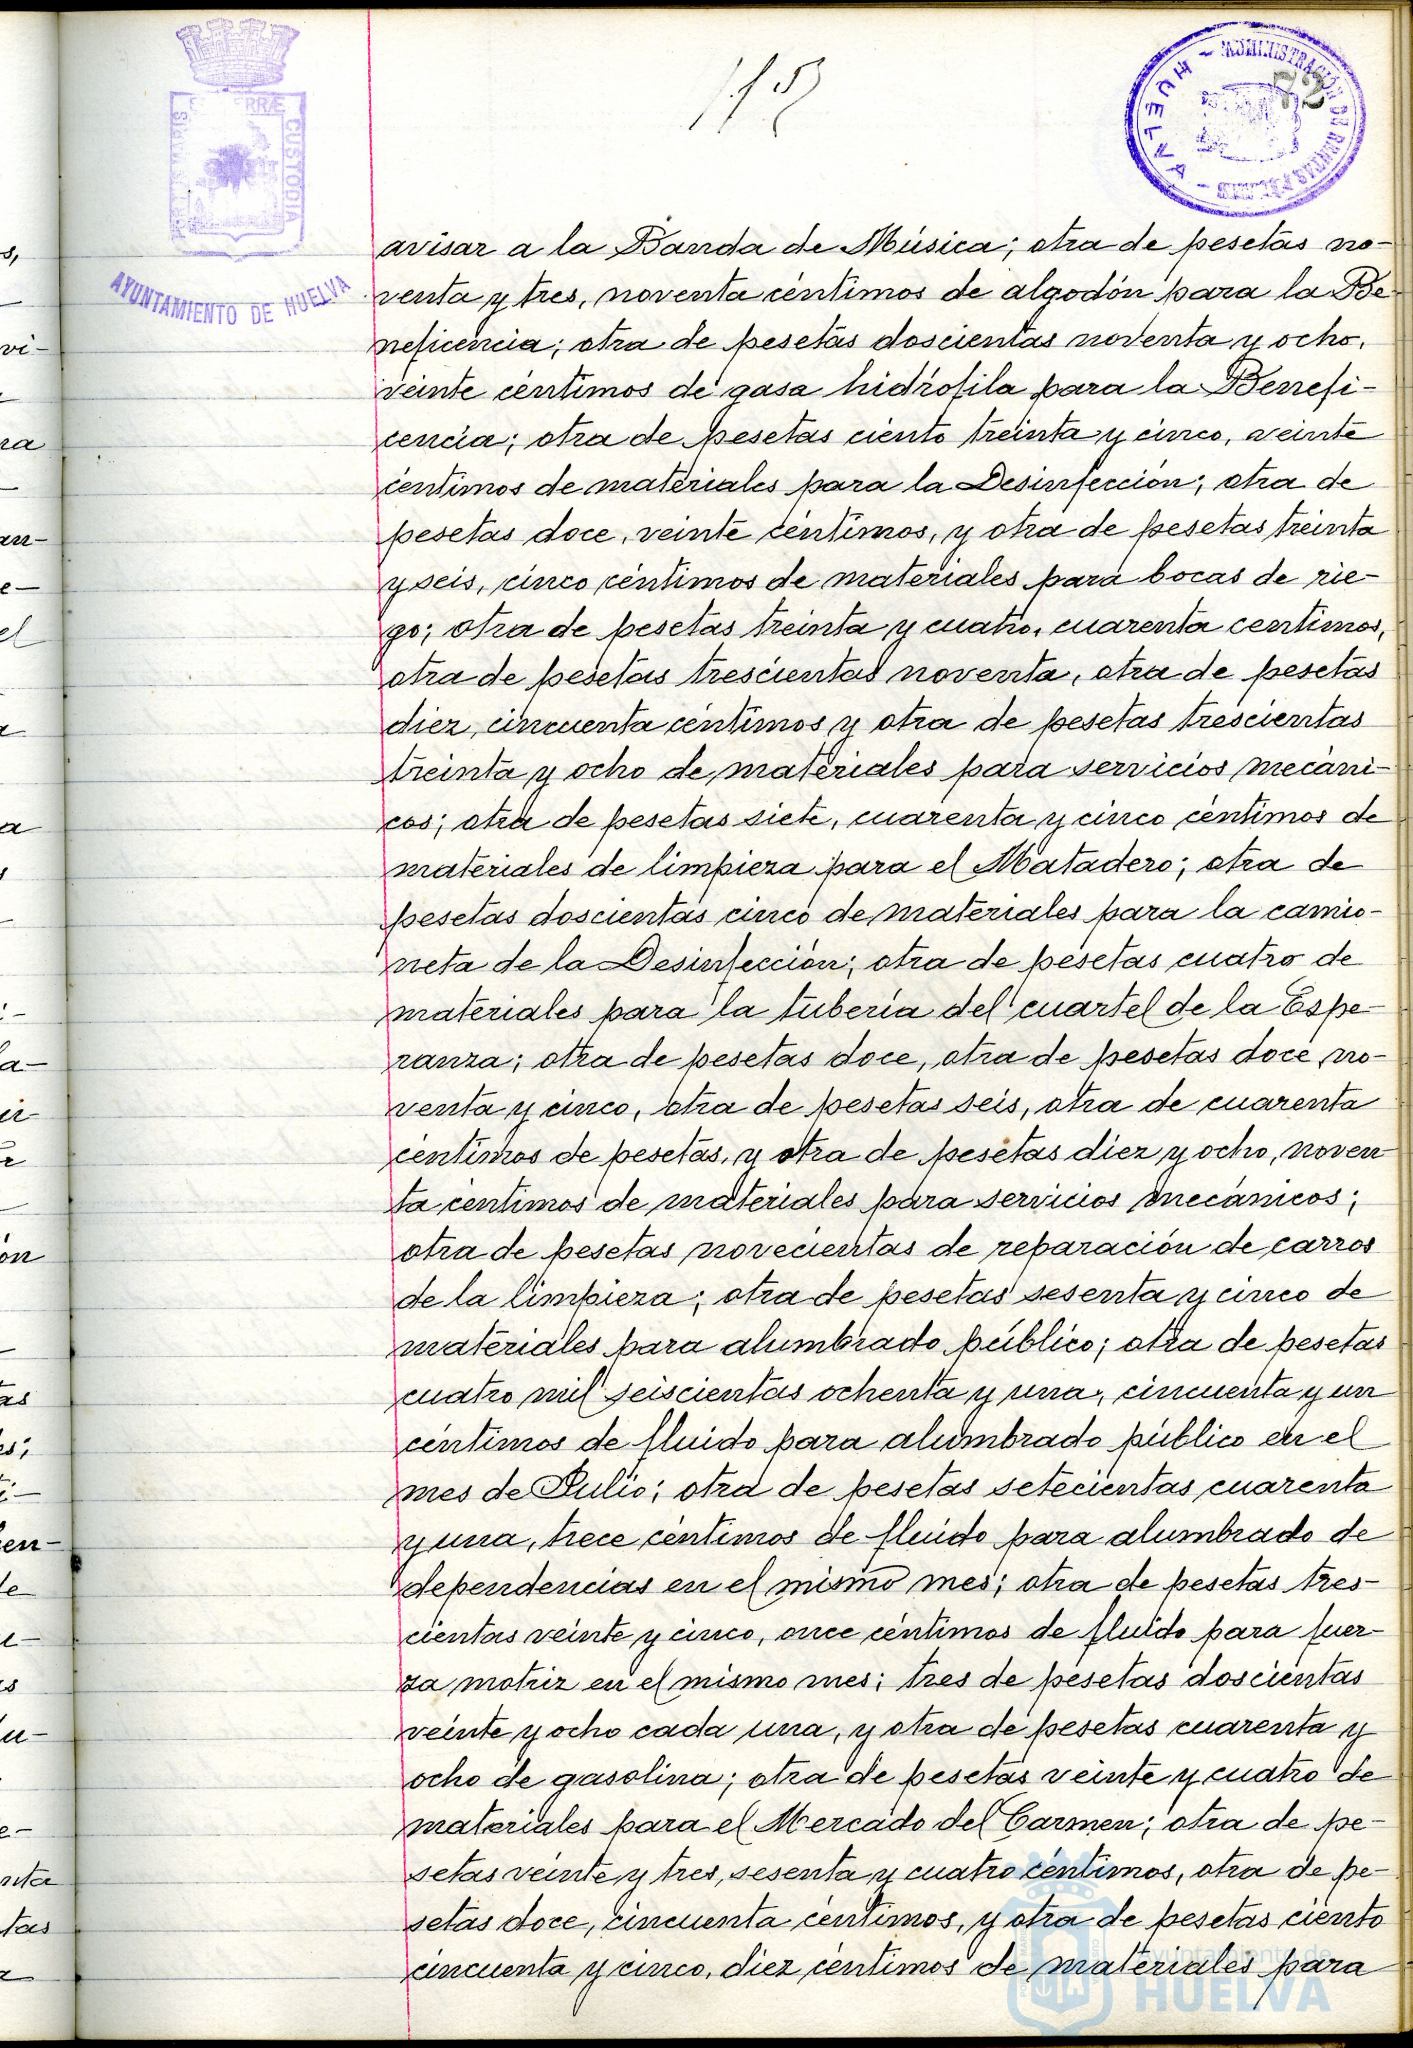 72
HUELVA - ADMINISTRACIÓN DE RENTAS PÚBLICAS -
TERRÆ CUSTODIA
AYUNTAMIENTO DE HUELVA
avisar a la Banda de Música; otra de pesetas no-
venta y tres, noventa céntimos de algodón para la Be-
neficencia; otra de pesetas doscientas noventa y ocho,
veinte céntimos de gasa hidrófila para la Benefi-
cencia; otra de pesetas ciento treinta y cinco, veinte
céntimos de materiales para la Desinfección; otra de
pesetas doce, veinte céntimos, y otra de pesetas treinta
y seis, cinco céntimos de materiales para bocas de rie-
go; otra de pesetas treinta y cuatro, cuarenta centimos,
otra de pesetas trescientas noventa, otra de pesetas
diez, cincuenta céntimos y otra de pesetas trescientas
treinta y ocho de materiales para servicios mecáni-
cos; otra de pesetas siete, cuarenta y cinco céntimos de
materiales de limpieza para el Matadero; otra de
pesetas doscientas cinco de materiales para la camio-
neta de la Desinfección; otra de pesetas cuatro de
materiales para la tubería del cuartel de la Espe-
ranza; otra de pesetas doce, otra de pesetas doce, no-
venta y cinco, otra de pesetas seis, otra de cuarenta
céntimos de pesetas, y otra de pesetas diez y ocho, noven
ta centimos de materiales para servicios mecánicos;
otra de pesetas novecientas de reparación de carros
de la limpieza; otra de pesetas sesenta y cinco de
materiales para alumbrado público; otra de pesetas
cuatro mil seiscientas ochenta y una, cincuenta y un
céntimos de fluido para alumbrado público en el
mes de Julio; otra de pesetas setecientas cuarenta
y una, trece céntimos de fluido para alumbrado de
dependencias en el mismo mes; otra de pesetas tres-
cientas veinte y cinco, once céntimos de fluído para fuer-
za motriz en el mismo mes; tres de pesetas doscientas
veinte y ocho cada una, y otra de pesetas cuarenta y
ocho de gasolina; otra de pesetas veinte y cuatro de
materiales para el Mercado del Carmen; otra de pe-
setas veinte y tres, sesenta y cuatro céntimos, otra de pe-
setas doce, cincuenta céntimos, y otra de pesetas ciento
cincuenta y cinco, diez céntimos de materiales para
Ayuntamiento de
HUELVA